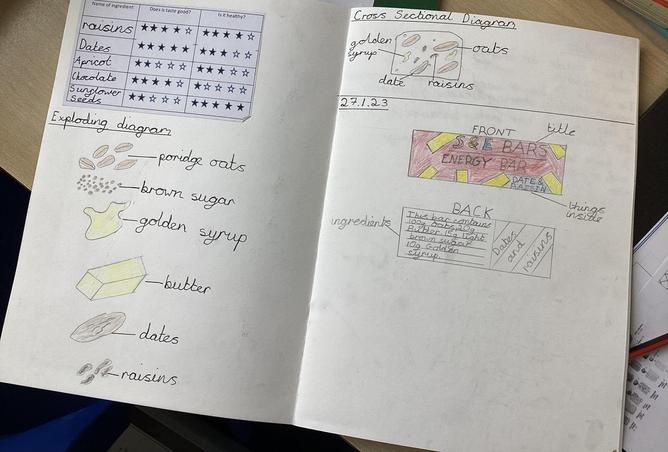 Name of ingredient
Does it taste good?
Is it healthy?
raisins ★★★★☆ ★★★★☆
Dates ★★★★★ ★★☆☆☆
Apricot ★★☆☆☆ ★★★☆☆
Chocolate ★★★★☆ ★☆☆☆☆
Sunflower
Seeds ★★☆☆☆ ★★★★★
Exploding diagram
poridge oats
brown sugar
golden syrup
butter
dates
raisins
Cross Sectional Diagram
golden
syrup
oats
date
raisins
27.1.23
FRONT
title
S & E BARS
ENERGY BAR
DATE &
RAISIN
things
inside
BACK
ingredients
This bar contains
100g oats, 20g
Butter, 15g light
brown sugar
10g Golden
syrup
Dates
and
raisins